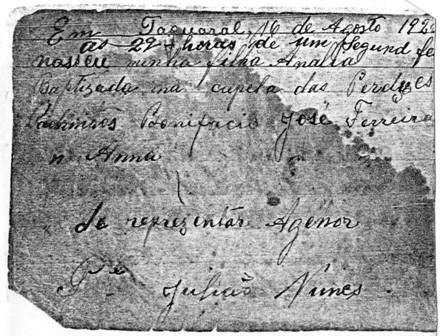 Em Taquaral, 16 de Agosto 192
as 22 horas de um Segund fe
nasceu minha filha Analia
baptizada na capela das Perdões
Padrinhos Bonifacio José Ferreira
n Anna
de representar Agenor
Pe
Julião Nunes